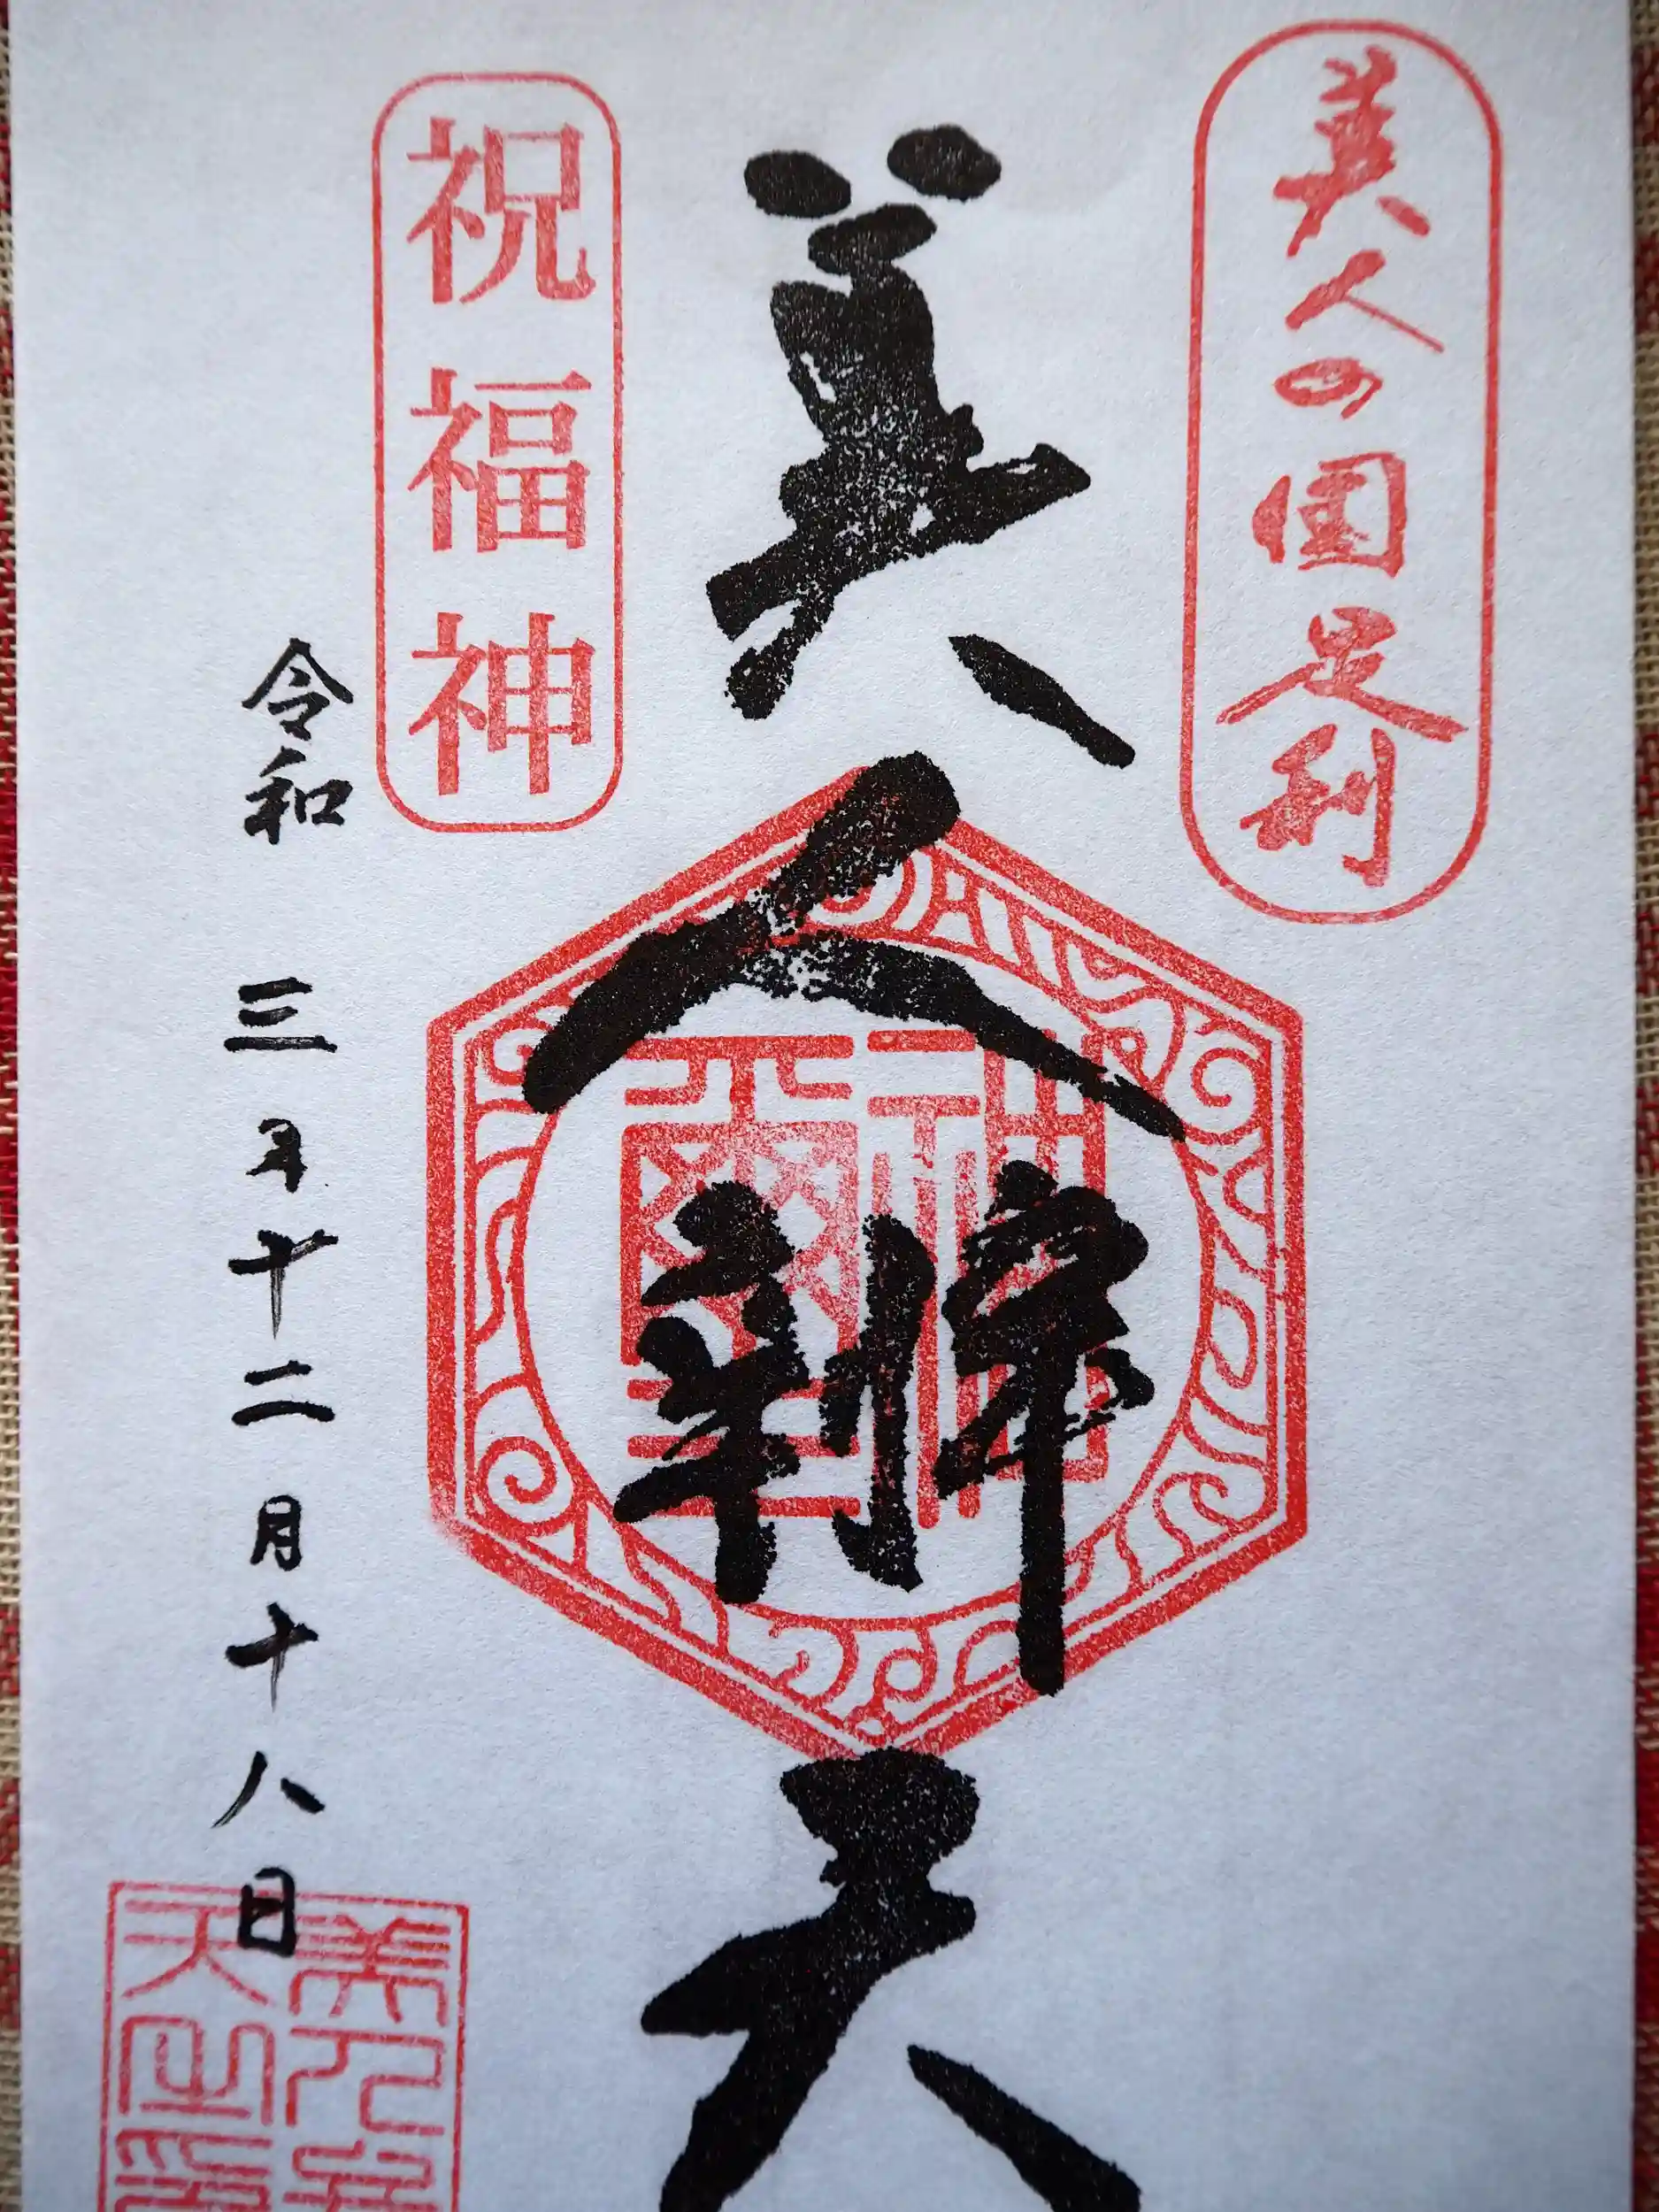 美人の国足利
美人辨天
祝福神
令和三年十二月十八日